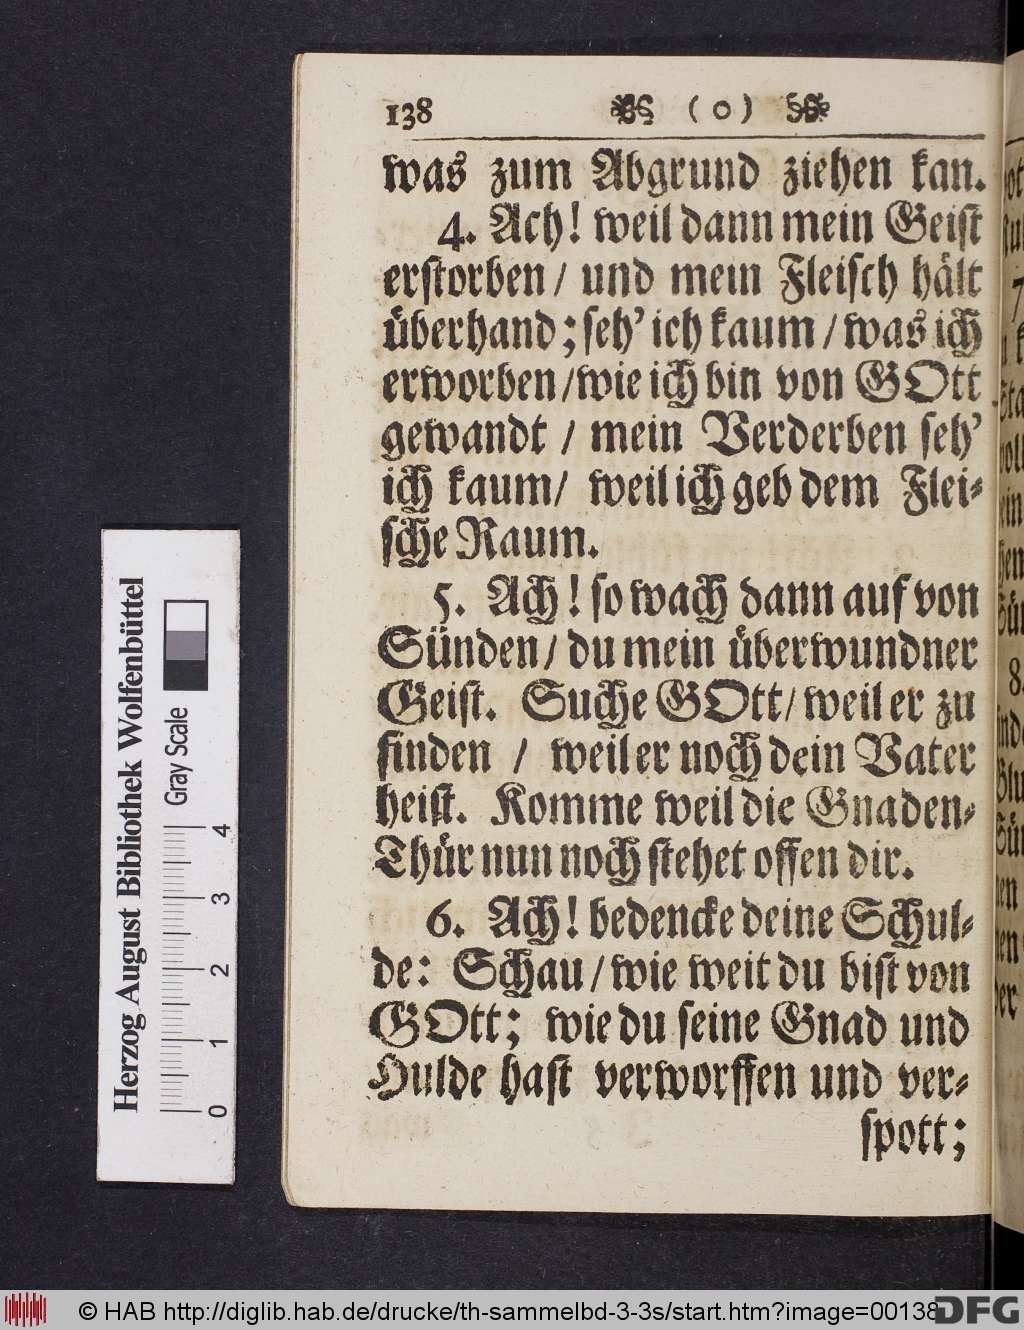 138 ( o )
was zum Abgrund ziehen kan.
4. Ach! weil dann mein Geist
erstorben / und mein Fleisch hält
überhand; seh' ich kaum / was ich
erworben / wie ich bin von GOtt
gewandt / mein Verderben seh'
ich kaum / weil ich geb dem Flei-
sche Raum.
5. Ach! so wach dann auf von
Sünden / du mein überwundner
Geist. Suche GOtt / weil er zu
finden / weil er noch dein Vater
heist. Komme weil die Gnaden-
Thür nun noch stehet offen dir.
6. Ach! bedencke deine Schul-
de: Schau / wie weit du bist von
GOtt; wie du seine Gnad und
Hulde hast verworffen und ver-
spott;
Herzog August Bibliothek Wolfenbüttel
Gray Scale
0 1 2 3 4
© HAB http://diglib.hab.de/drucke/th-sammelbd-3-3s/start.htm?image=00138
DFG